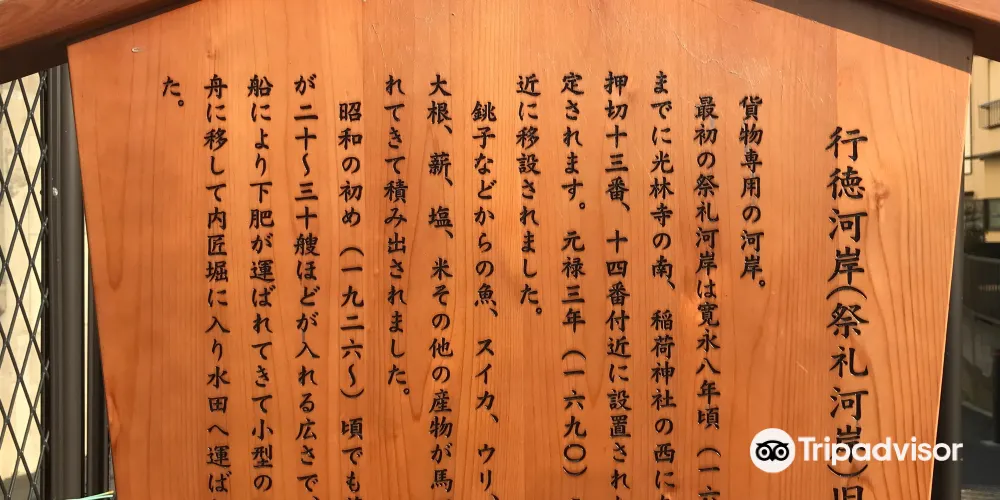 行徳河岸(祭礼河岸)旧
貨物専用の河岸。
最初の祭礼河岸は寛永八年頃(一六
までに光林寺の南、稲荷神社の西に
押切十三番、十四番付近に設置され
定されます。元禄三年(一六九〇)
近に移設されました。
銚子などからの魚、スイカ、ウリ、
大根、薪、塩、米その他の産物が馬
れてきて積み出されました。
昭和の初め(一九二六〜)頃でも
が二十〜三十艘ほどが入れる広さで、
船により下肥が運ばれてきて小型の
舟に移して内匠堀に入り水田へ運ば
た。
Tripadvisor